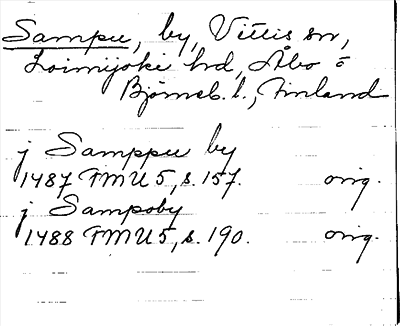 Sampu, by, Vittis sn,
Loimijoki hd, Åbo o
Björneb. l., Finland
j Samppu by
1487 FMU 5, s. 157. orig.
j Sampoby
1488 FMU 5, s. 190. orig.